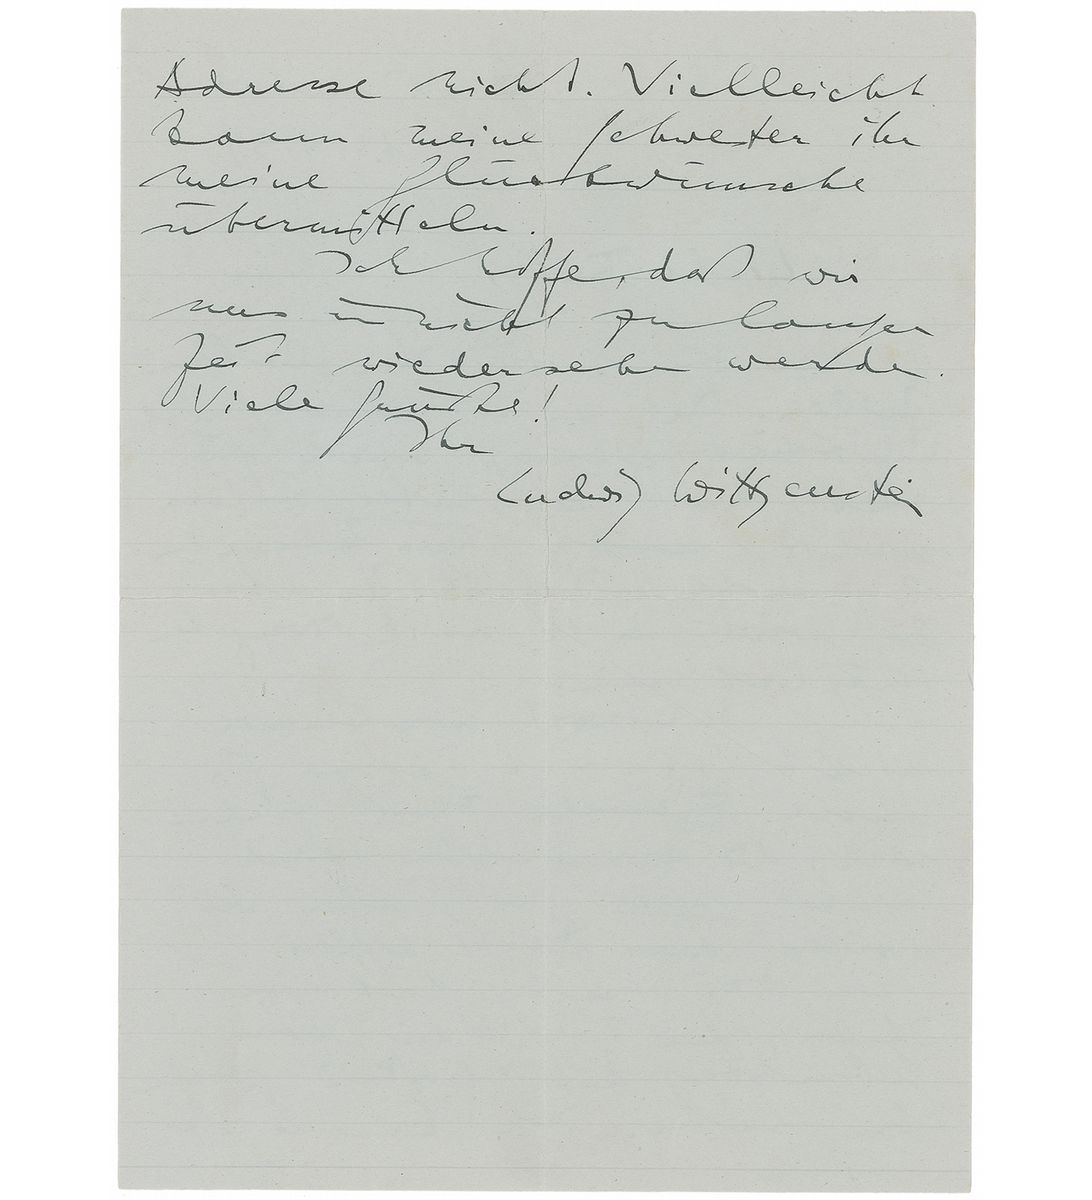 Adresse nicht. Vielleicht
kann meine Schwester ihr
meine Glückwünsche
übermitteln.
Ich hoffe, daß wir
uns in nicht zu langer
Zeit wiedersehen werden.
Viele Grüße!
Ihr
Ludwig Wittgenstein